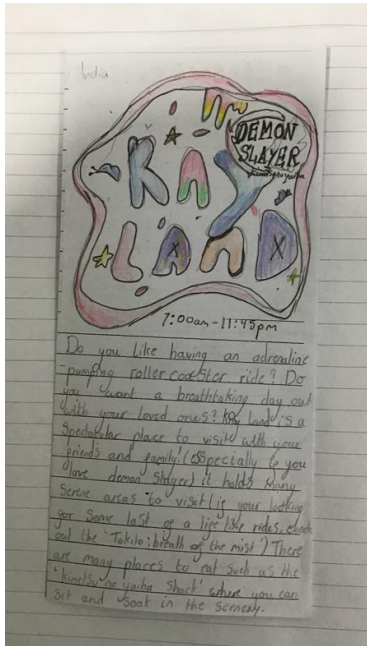 India
DEMON
SLAYER
KAY
LAND
7:00am-11:45pm
Do you like having an adrenaline
pumping roller coaster ride? Do
you want a breathtaking day out
with your loved ones? Kay land is a
Spectakular place to visit with your
friends and family! (ESpecially if you
love demon Slayer) it holds Many
Serene areas to visit (if your looking
for Some last of a life like rides, check
out the 'Tokito: breath of the mist') There
are many places to eat such as the
'kimetsu no yaiba Shack' where you can
Sit and Soak in the Scenery.